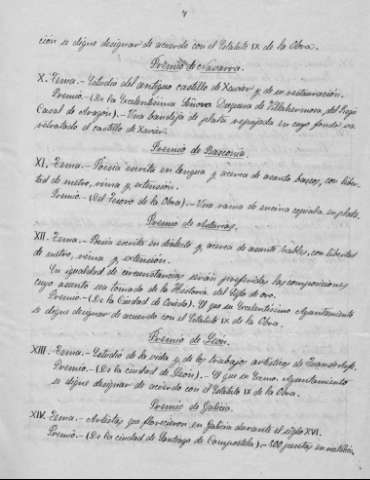 4
ción se digne designar de acuerdo con el Estatuto IX de la Obra.
Premio de Navarra.
X. Tema.- Estudio del antiguo castillo de Xavier y de su restauración.
Premio.- (De la Excelentísima Señora Duquesa de Villahermosa, del Regio
Casal de Aragón).- Una bandeja de plata repujada en cuyo fondo va
retratado el castillo de Xavier.
Premio de Basconia.
XI. Tema.- Poesía escrita en lengua y acerca de asunto bascos, con liber-
tad de metro, rima y extensión.
Premio.- (Del Tesoro de la Obra).- Una rama de encina copiada en plata.
Premio de Asturias.
XII. Tema.- Poesía escrita en dialecto y acerca de asunto bables, con libertad
de metro, rima y extensión.
En igualdad de circunstancias serán preferidas las composiciones
cuyo asunto sea tomado de la Historia del siglo de oro.
Premio.- (De la Ciudad de Oviedo). El que su Excelentísimo Ayuntamiento
se digne designar de acuerdo con el Estatuto IX de la Obra.
Premio de León.
XIII. Tema.- Estudio de la vida y de los trabajos artísticos de
Premio.- (De la ciudad de León).- El que su Excmo. Ayuntamiento
se digne designar de acuerdo con el Estatuto IX de la Obra.
Premio de Galicia.
XIV. Tema.- Artistas que florecieron en Galicia durante el siglo XVI.
Premio.- (De la ciudad de Santiago de Compostela).- 500 pesetas en metálico.